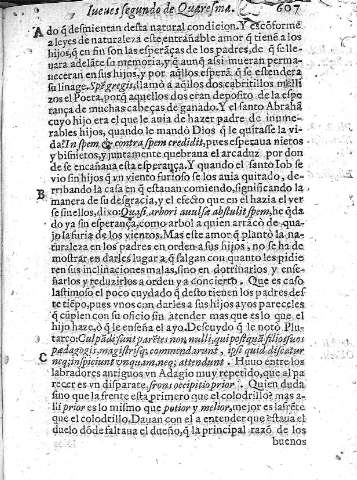 Iueues segundo de Quaresma. 607
do q̃ desmientan desta natural condicion. Y es cõforme
a leyes de naturaleza este entrañable amor q̃ tiene a los
hijos, q̃ en fin son las esperãças de los padres, de q̃ se lle-
uara adelãte su memoria, y q̃ aunq̃ assi mueran perma-
neceran en sus hijos, y por aq̃llos esperã q̃ se estendera
su linage. Spẽ gregis, llamò a aq̃llos dos cabritillos melli-
zos el Poeta, porq̃ aquellos eran deposito de la espe-
rança de muchas cabeças de ganado. Y el santo Abrahã
cuyo hijo era el que le auia de hazer padre de innume-
rables hijos, quando le mandò Dios q̃ le quitasse la vi-
da: In spem & contra spem credidit, pues esperaua nietos
y bisnietos, y juntamente quebraua el arcaduz por don
de se encañaua esta esperança. Y quando el santo Iob se
vio sin hijos q̃ vn viento furioso se los auia quitado, de-
rribando la casa en q̃ estauan comiendo, significando la
manera de su desgracia, y el efecto que en el hazia el ver
se sin ellos, dixo: Quasi arbori auulsæ abstulit spem, he q̃da
do ya sin esperança, como arbol a quien arrãcò de qua-
jo la furia de los vientos. Mas este amor q̃ plantò la na-
turaleza en los padres en orden a sus hijos, no se ha de
mostrar en darles lugar a q̃ salgan con quanto les pidie
ren sus inclinaciones malas, sino en dotrinarlos y ense-
ñarlos y reduzirlos a orden y a concierto. Que es caso
lastimoso el poco cuydado q̃ desto tienen los padres des
te tiẽpo, pues vnos con darles a sus hijos ayos pareceles
q̃ cũplen con su oficio sin atender mas que es lo que el
hijo haze, ò q̃ le enseña el ayo. Descuydo q̃ le notò Plu-
tarco: Culpãdi sunt parẽtes non nulli, qui postquã filios suos
pædagogis, magistrisq; commendarunt, ipsi quid discatur
neq; inspiciunt vnquam, neq; attendunt. Huuo entre los
labradores antiguos vn Adagio muy repetido, que al pa
recer es vn disparate, frons occipitio prior. Quien duda
sino que la frente esta primero que el colodrillo? mas a-
lli prior es lo mismo que potior y melior, mejor es la frẽte
que el colodrillo. Dauan con el a entender que estaua el
duelo dõde faltaua el dueño, q̃ la principal razõ de los
buenos
A
B
C